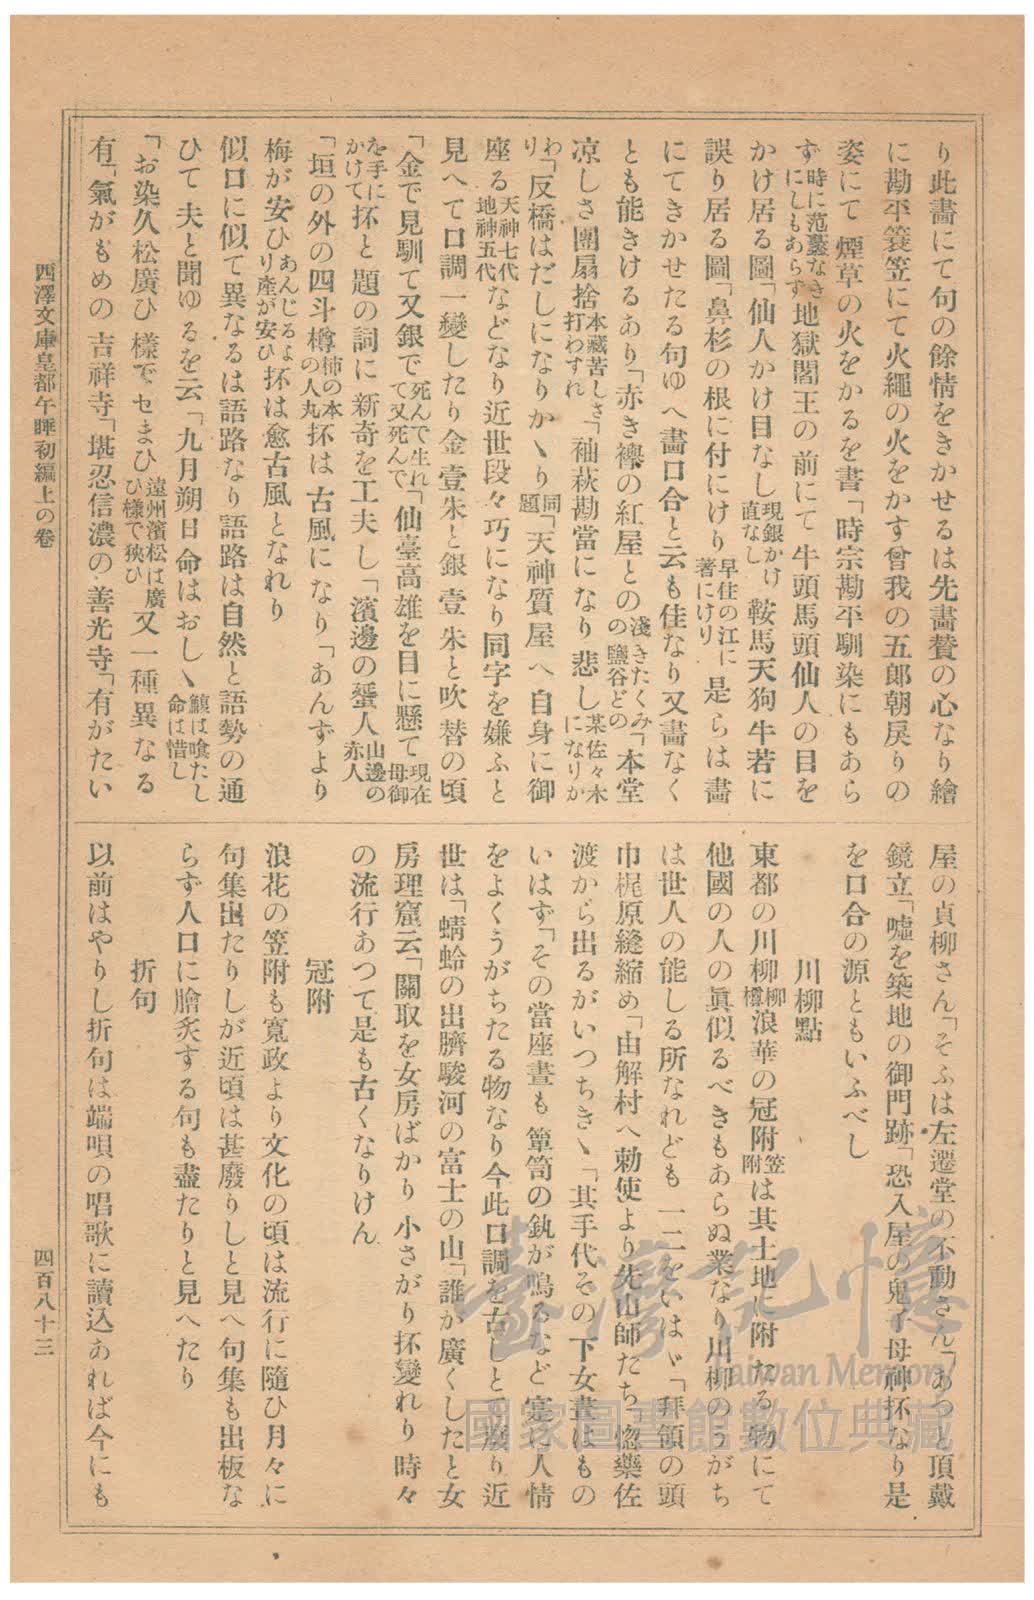 り此畵にて句の餘情をきかせるは先畵賛の心なり繪
に勘平簑笠にて火繩の火をかす曾我の五郎朝戾りの
姿にて煙草の火をかるを書「時宗勘平馴染にもあら
ず時に范蠡なきにしもあらず地獄閻王の前にて牛頭馬頭仙人の目を
かけ居る圖「仙人かけ目なし現銀かけ直なし鞍馬天狗牛若に
誤り居る圖「鼻杉の根に付にけり早住の江に著にけり是らは畵
にてきかせたる句ゆへ畵口合と云も佳なり又畵なく
とも能きけるあり「赤き襷の紅屋との淺きたくみの鹽谷どの「本堂
凉しさ團扇捨本藏苦しさ打わすれ「袖萩勘當になり悲し某佐々木になりか
わり「反橋はだしになりかゝり同題「天神質屋へ自身に御
座る天神七代地神五代などなり近世段々巧になり同字を嫌ふと
見へて口調一變したり金壹朱と銀壹朱と吹替の頃
「金で見馴て又銀で死んで生れて又死んで「仙臺高雄を目に懸て現在母御
を手にかけて抔と題の詞に新奇を工夫し「濱邊の蜑人山邊の赤人
「垣の外の四斗樽柿の本の人丸抔は古風になり「あんずより
梅が安ひあんじるより產が安ひ抔は愈古風となれり
似口に似て異なるは語路なり語路は自然と語勢の通
ひて夫と聞ゆるを云「九月朔日命はおしゝ鰒は喰たし命は惜し
「お染久松廣ひ樣でセまひ遠州濱松は廣ひ樣で狹ひ又一種異なる
有「氣がもめの吉祥寺「堪忍信濃の善光寺「有がたい
屋の貞柳さん「そふは左遷堂の不動さん「あつと頂戴
鏡立「噓を築地の御門跡「恐入屋の鬼子母神抔なり是
を口合の源ともいふべし
川柳點
東都の川柳柳樽浪華の冠附笠附は其土地に附たる物にて
他國の人の眞似るべきもあらぬ業なり川柳のうがち
は世人の能しる所なれども一二をいはゞ「拜領の頭
巾梶原縫縮め「由解村へ勅使より先山師たち「惚藥佐
渡から出るがいつちきゝ「其手代その下女晝はもの
いはず「その當座晝も簞笥の釻が鳴るなど寔に人情
をよくうがちたる物なり今此口調を古しとて廢り近
世は「蜻蛉の出臍駿河の富士の山「誰が廣くしたと女
房理窟云「關取を女房ばかり小さがり抔變れり時々
の流行あつて是も古くなりけん
冠附
浪花の笠附も寬政より文化の頃は流行に隨ひ月々に
句集出たりしが近頃は甚廢りしと見へ句集も出板な
らず人口に膾炙する句も盡たりと見へたり
折句
以前はやりし折句は端唄の唱歌に讀込あれば今にも
四澤文庫皇都午睡初編上の卷
四百八十三
臺灣記憶
Taiwan Memory
國家圖書館數位典藏